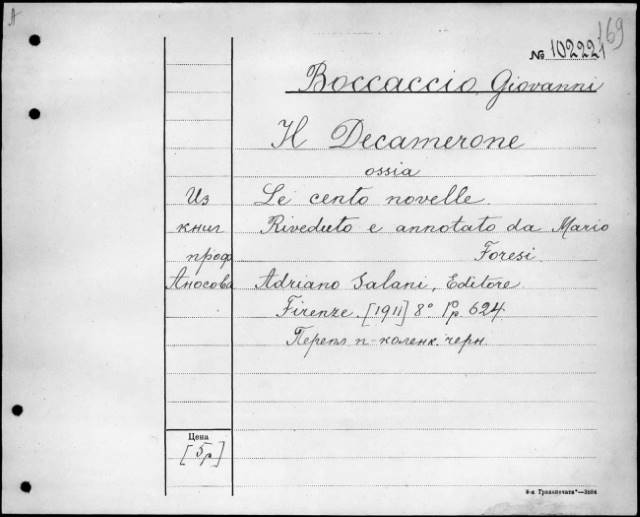 А
169
№ 102221
Boccaccio, Giovanni
Il Decamerone
ossia
Из Le cento novelle.
книг Riveduto e annotato da Mario
проф. Foresi.
Аносова Adriano Salani, Editore
Firenze. [1911] 8° Pp. 624.
Перепл п-коленк. черн.
Цена
[5р]